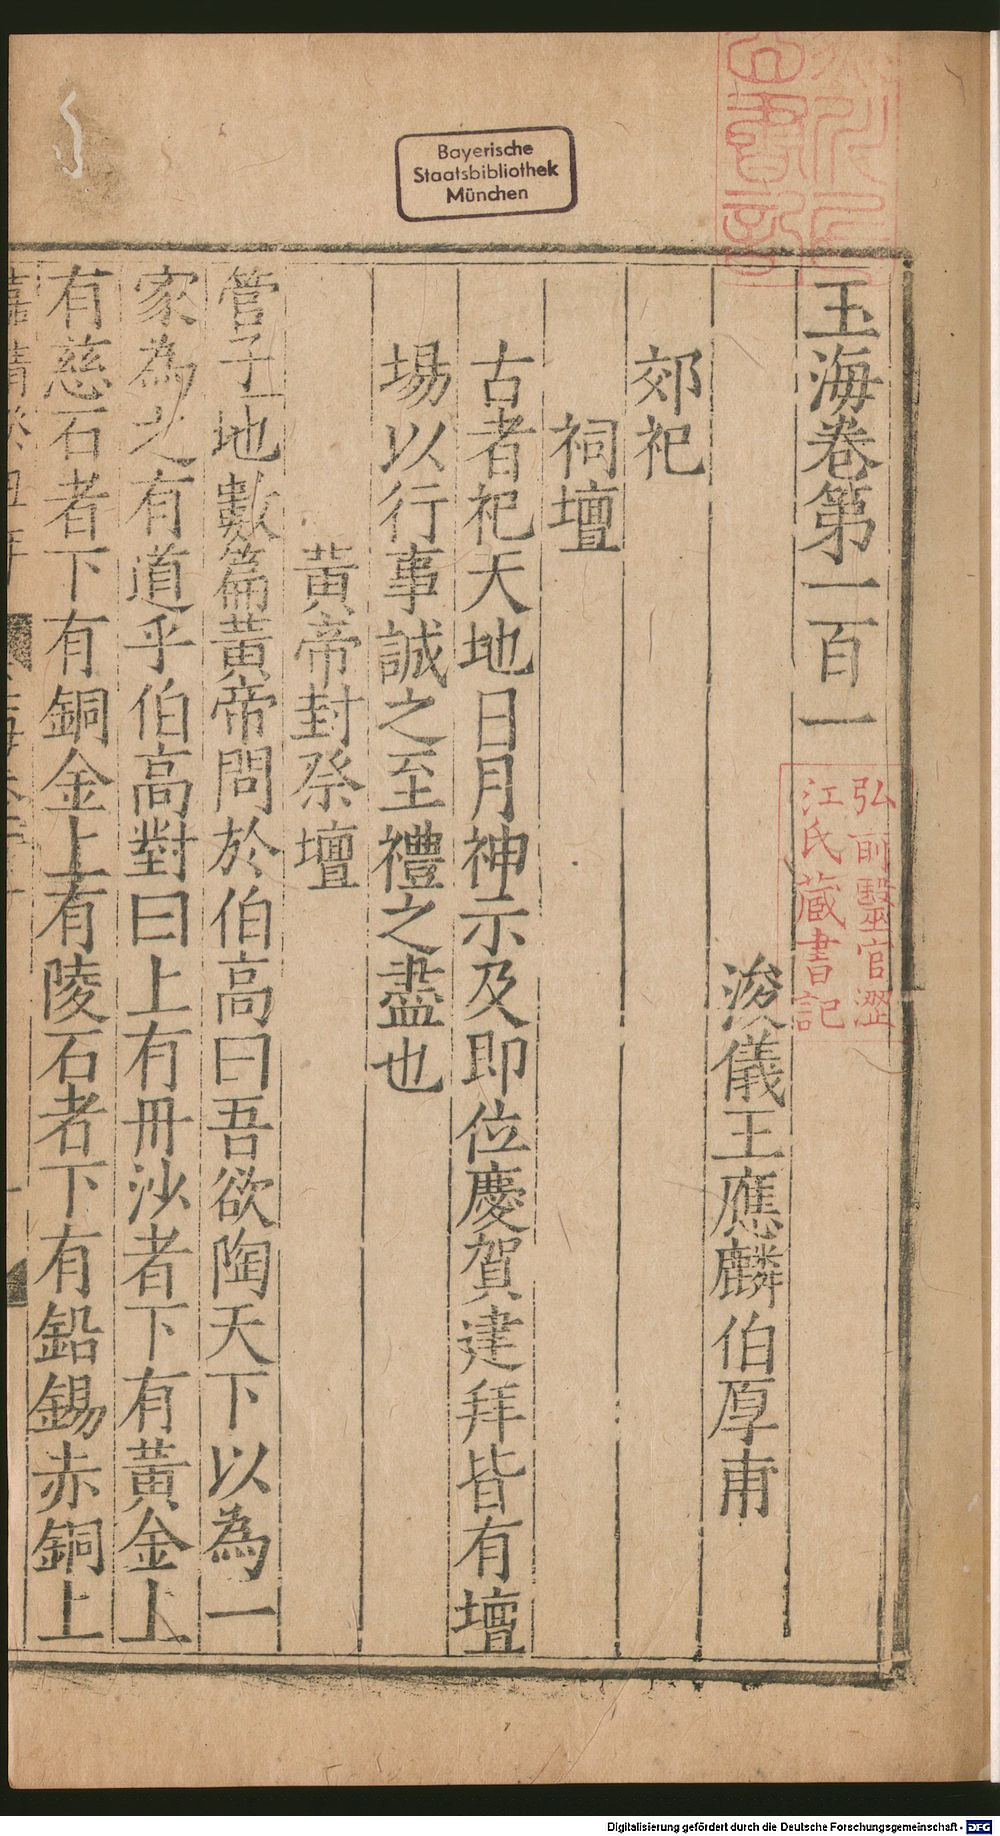 Bayerische
Staatsbibliothek
München
玉海卷第一百一
弘前毉官澀
江氏藏書記
浚儀王應麟伯厚甫
郊祀
祠壇
古者祀天地日月神示及即位慶賀建拜皆有壇
場以行事誠之至禮之盡也
黃帝封祭壇
管子地數篇黃帝問於伯高曰吾欲陶天下以為一
家為之有道乎伯高對曰上有冊沙者下有黃金上
有慈石者下有銅金上有陵石者下有鉛錫赤銅上
Digitalisierung gefördert durch die Deutsche Forschungsgemeinschaft - DFG